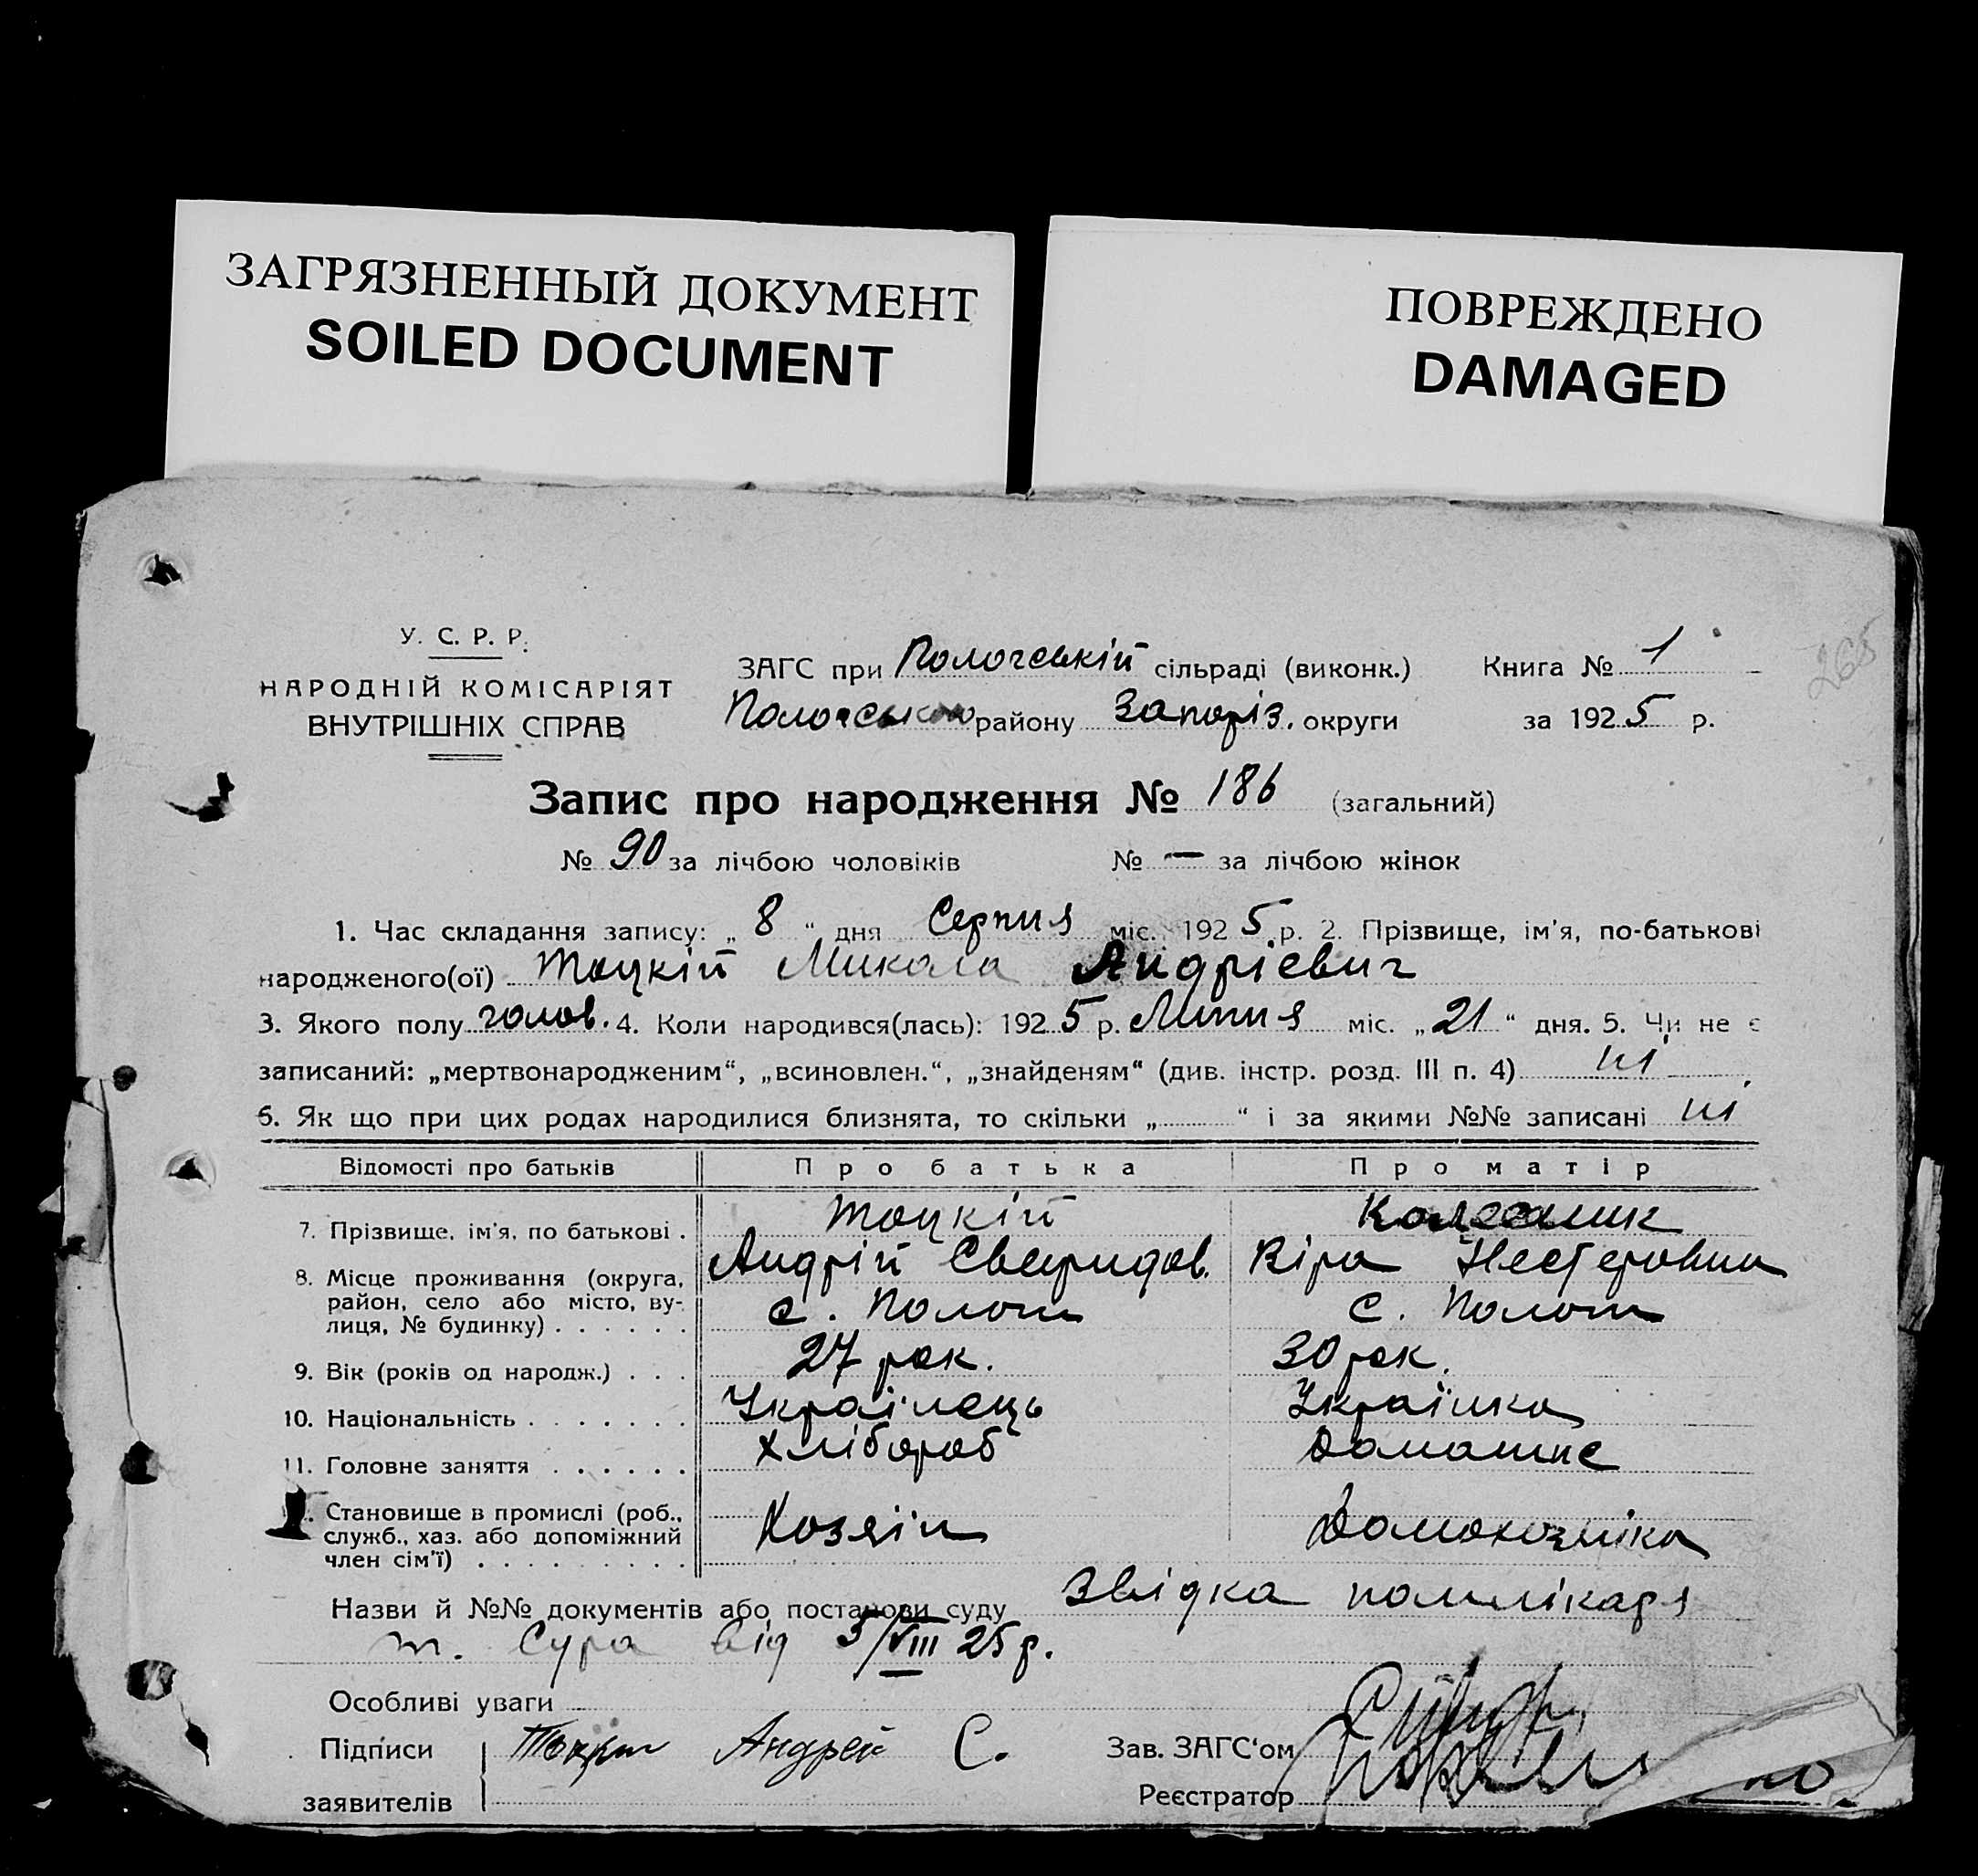 ЗАГРЯЗНЕННЫЙ ДОКУМЕНТ
SOILED DOCUMENT
ПОВРЕЖДЕНО
DAMAGED
265
У. С. Р. Р.
НАРОДНІЙ КОМІСАРІЯТ
ВНУТРІШНІХ СПРАВ
ЗАГС при Пологській сільраді (виконк.) Книга № 1
Пологського району Запоріз. округи за 1925 р.
Запис про народження № 186 (загальний)
№ 90 за лічбою чоловіків № — за лічбою жінок
1. Час складання запису: „ 8 “ дня Серпня міс. 1925 р. 2. Прізвище, ім'я, по-батькові
народженого(ої) Тоцкій Микола Андрієвич
3. Якого полу чолов. 4. Коли народився(лась): 1925 р. Липня міс. „ 21 “ дня. 5. Чи не є
записаний: „мертвонародженим“, „всиновлен.“, „знайденям“ (див. інстр. розд. III п. 4) ні
6. Як що при цих родах народилися близнята, то скільки „ “ і за якими №№ записані ні
Відомості про батьків Про батька Про матір
7. Прізвище, ім'я, по батькові . Тоцкій Колесник
Андрій Свиридов. Віра Нестеровна
8. Місце проживання (округа,
район, село або місто, ву-
лиця, № будинку) . . . . . . с. Пологи с. Пологи
9. Вік (років од народж.) . . . 27 рок. 30 рок.
10. Національність . . . . . . . Українець Українка
11. Головне заняття . . . . . . Хлібороб Домашнє
. Становище в промислі (роб.,
служб., хаз. або допоміжний
член сім'ї) . . . . . . . . . Хозяін Домохозяіка
Назви й №№ документів або постанови суду Звідка помлікаря
т. Сура від 5/VIII 25 р.
Особливі уваги
Підписи Андрей С. Зав. ЗАГС'ом
заявителів Реєстратор